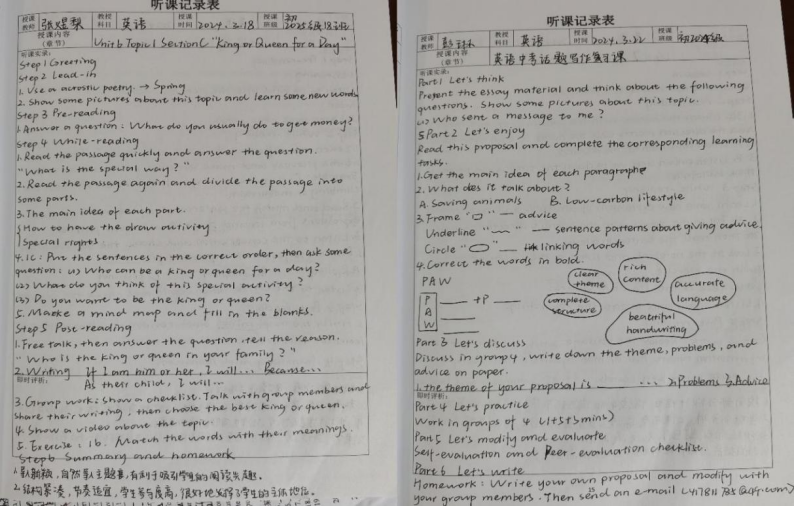 听课记录表
授课教师 张煜梨 教授科目 英语 授课时间 2024.3.18 授课班级 初
授课内容(章节) Unit 6 Topic 1 Section C "King or Queen for a Day"
听课实录:
Step 1 Greeting
Step 2 Lead-in
1. Use a acrostic poetry. → Spring
2. Show some pictures about this topic and learn some new words
Step 3 Pre-reading
1. Answer a question: What do you usually do to get money?
Step 4 While-reading
1. Read the passage quickly and answer the question.
"What is the special way?"
2. Read the passage again and divide the passage into
some parts.
3. The main idea of each part.
How to have the draw activity
Special rights
4. 1c: Put the sentences in the correct order, then ask some
question: (1) Who can be a king or queen for a day?
(2) What do you think of this special activity?
(3) Do you want to be the king or queen?
5. Make a mind map and fill in the blanks.
Step 5 Post-reading
1. Free talk, then answer the question, tell the reason.
"Who is the king or queen in your family?"
2. Writing If I am him or her, I will... Because...
As their child, I will...
即时评析:
3. Group work: Show a checklist. Talk with group members and
share their writing, then choose the best king or queen.
4. Show a video about the topic.
5. Exercise: 1b. Match the words with their meanings.
Step 6 Summary and homework
2. 结构紧凑,节奏适宜,学生参与度高,很好地发挥了学生的主体地位。
听课记录表
授课教师 教授科目 英语 授课时间 2024.3.22 授课班级
授课内容(章节) 英语中考话题写作复习课
听课实录:
Part 1 Let's think
Present the essay material and think about the following
questions. Show some pictures about this topic.
(1) Who sent a message to me?
Part 2 Let's enjoy
Read this proposal and complete the corresponding learning
tasks.
1. Get the main idea of each paragraph
2. What does it talk about?
A. Saving animals B. Low-carbon lifestyle
3. Frame "▭" — advice
Underline "﹏" — sentence patterns about giving advice.
Circle "○" — linking words
4. Correct the words in bold.
PAW
clear theme
rich content
accurate language
complete structure
beautiful handwriting
P ___ + P ___
A ___
W ___
Part 3 Let's discuss
Discuss in group 4, write down the theme, problems, and
advice on paper.
1. the theme of your proposal is ______ ... 2. Problems 3. Advice
即时评析:
Part 4 Let's practice
Work in groups of 4 (1+5+3mins)
Part 5 Let's modify and evaluate
Self-evaluation and Peer-evaluation checklist.
Part 6 Let's write
Homework: Write your own proposal and modify with
your group members. Then send an e-mail